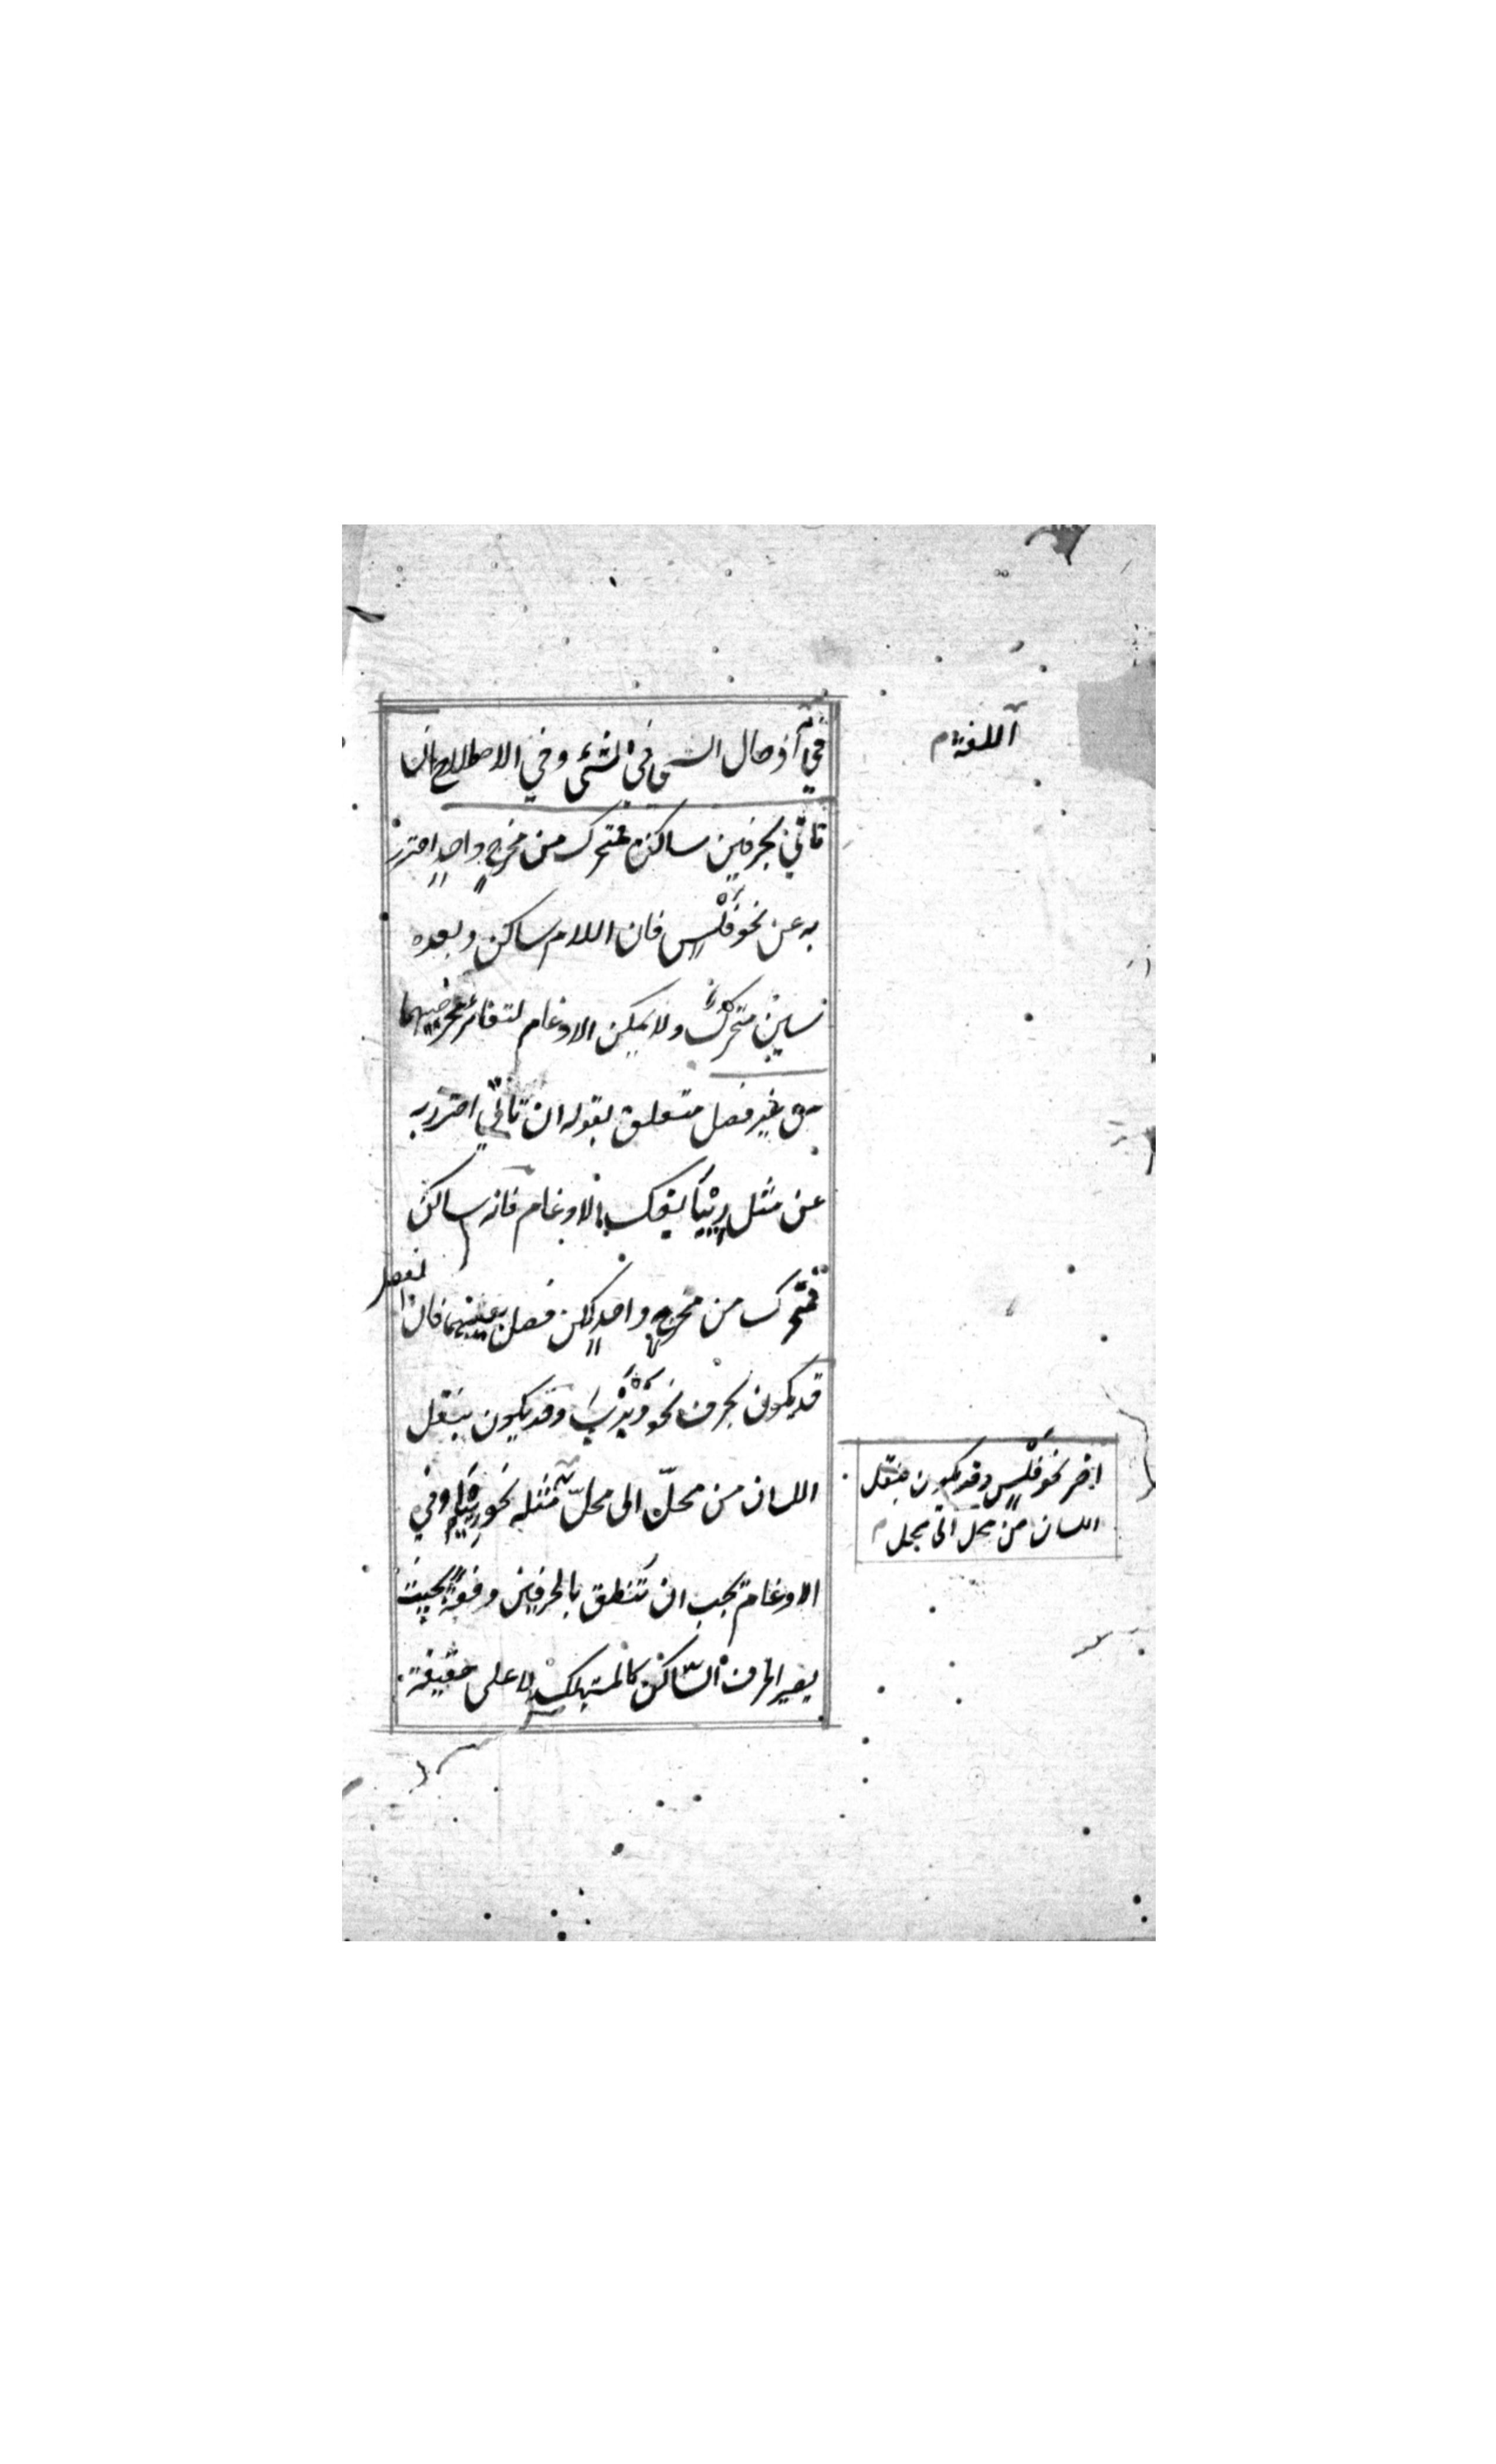 في ادخال الشئ في الشئ وفي الاصطلاح ان
تاتي بحرفين ساكن فمتحرك من مخرجٍ واحدٍ احترز
به عن نحو فَلْسٍ فان اللام ساكن وبعده
سين متحركٌ ولا يمكن الادغام لتغائر مخرجيهما
من غير فصل متعلق بقوله ان تاتي احترز به
عن مثل رِيْيَا بفك الادغام فانه ساكن
فمتحرك من مخرجٍ واحدٍ لكن فصل بينهما فان الفصل
قد يكون بحرف نحو وقد يكون بنقل
اللسان من محلّ الى محلّ مثله نحو وفي
الادغام يجب ان تنطق بالحرفين دفعةً بحيث
يصير الحرف السّاكن كالمستهلك لا على حقيقة
اللغة م
اخر نحو فَلْسٍ وقد يكون بنقل
اللسان من محل الى محل م